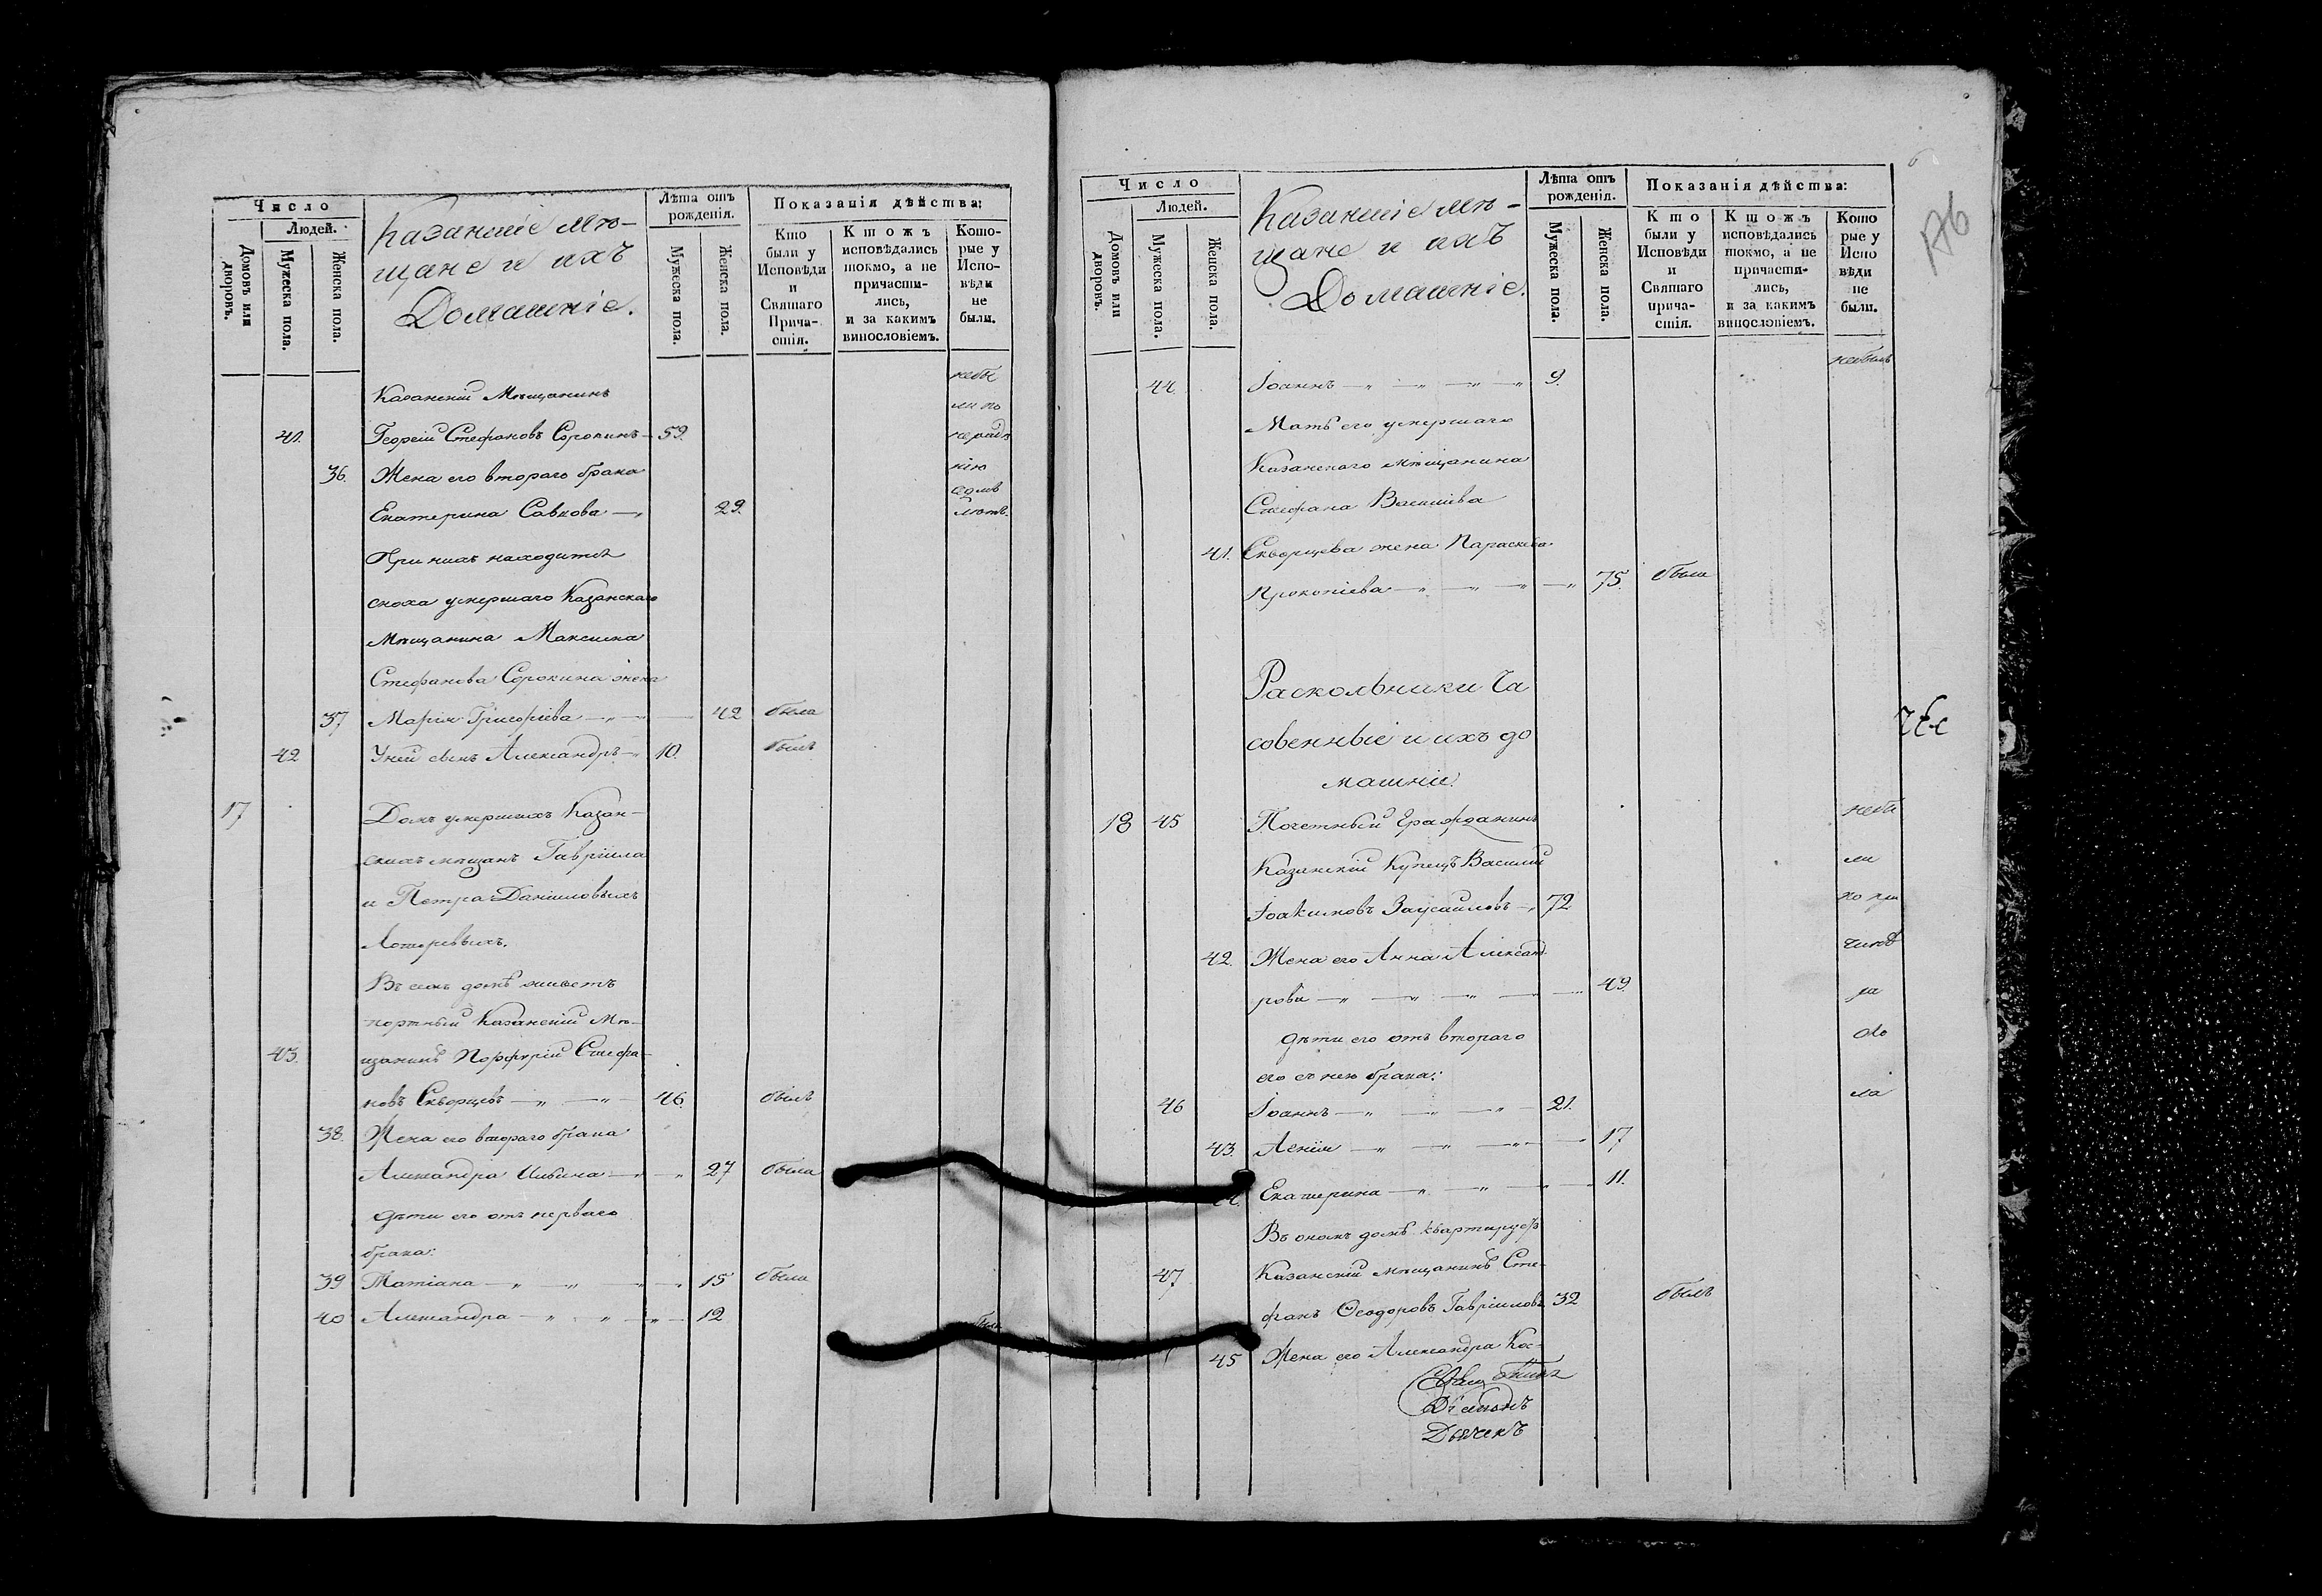 Число
Людей.
Домовъ или дворовъ.
Мужеска пола.
Женска пола.
Казанскіе мѣ-
щане и ихъ
Домашніе.
Лѣта отъ рожденія.
Мужеска пола.
Женска пола.
Показанія дѣйства:
Кто были у Исповѣди и Святаго Прича-стія.
Ктожъ исповѣдались токмо, а не причасти-лись, и за какимъ винословіемъ.
Кото-рые у Испо-вѣди не были.
Казанскій Мѣщанинъ небы
ли по
41. Георгій Стефановъ Сорокинъ 59. нерадѣ
36. Жена его втораго брака нію
Екатерина Саввова 29.
лѣтъ.
При нихъ находится
сноха умершаго Казанскаго
Мѣщанина Максима
Стефанова Сорокина жена
37 Марія Григоріева 42 была
42 У ней сынъ Александръ 10. былъ
17 Домъ умершихъ Казан-
скихъ мѣщанъ Гавріила
и Петра Даниловыхъ
Въ семъ домѣ живетъ
портный Казанскій Мѣ-
43. щанинъ Порфирій Стефа-
новъ Скворцевъ 46. былъ
38. Жена его втораго брака
Александра Ильина 27 была
дѣти его отъ перваго
брака:
39 Татіана 15 была
40 Александра 12 была
Число
Людей.
Домовъ или дворовъ.
Мужеска пола.
Женска пола.
Казанскіе мѣ-
щане и ихъ
Домашніе.
Лѣта отъ рожденія.
Мужеска пола.
Женска пола.
Показанія дѣйства:
Кто были у Исповѣди и Святаго прича-стія.
Ктожъ исповѣдались токмо, а не причасти-лись, и за какимъ винословіемъ.
Кото рые у Испо вѣди не были.
44. Іоаннъ 9. небылъ
Мать его умершаго
Казанскаго мѣщанина
Стефана Василіева
41. Скворцева жена Параскева
Прокопіева 75. была
Раскольники Ча
совенные и ихъ до
машніе.
18 45 Почетный Гражданинъ небы
Казанскій Купецъ Василій ли
Іоакимовъ Заусайловъ 72 по при
42. Жена его Анна Александ чинѣ
рова 49. ра
дѣти его отъ втораго ско
его съ нею брака:
46 Іоаннъ 21. ла
43. 17
Екатерина 11.
Въ ономъ домѣ квартируетъ
47 Казанскій мѣщанинъ Сте-
фанъ Ѳеодоровъ Гавриловъ 32 былъ
45 Жена его Александра Кос-
Діаконъ
Дьячекъ